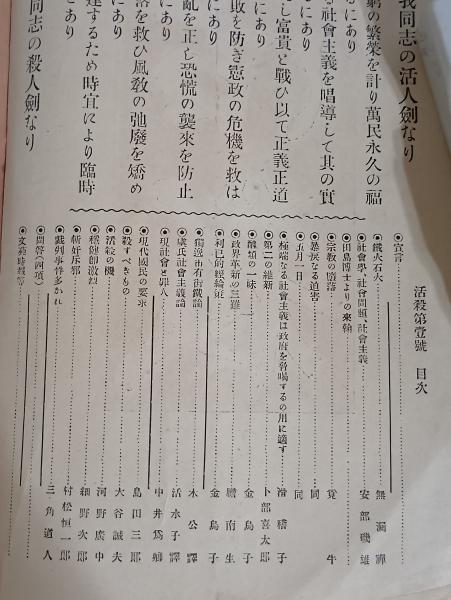 我同志の活人劍なり
窮の繁榮を計り萬民永久の福
にあり
る社會主義を唱導して其の實
にあり
し富貴と戰ひ以て正義正道
にあり
敗を防ぎ憲政の危機を救は
にあり
亂を正し恐慌の襲來を防止
にあり
落を救ひ風敎の弛廢を矯め
にあり
達するため時宜により臨時
とあり
同志の殺人劍なり
活殺第壹號 目次
◉宣言
◉鐵火石火 無漏禪
◉社會學、社會問題、社會主義 安部磯雄
◉田島博士よりの來翰
◉宗敎の墮落 寬牛
◉暴戾なる迫害 同
◉五月一日 同
◉極端なる社會主義は政府を脅喝するの用に適す 滑稽子
◉第二の維新 卜部喜太郎
◉醜類の一味 金鳥子
◉政界革新の三難 膽南生
◉利己的經綸策 金鳥子
◉獨逸市有街鐵論 木公譯
◉虞氏社會主義論 活水子譯
◉現社會と罪人 中井爲鄕
◉現代國民の要求 島田三郎
◉殺すべきもの 大谷誠夫
◉活殺の機 河野廣中
◉穩健勿激烈 細野次郎
◉斬奸斥邪 村松恒一郎
◉裁判事件多かれ 三角道人
◉問答(四項)
◉文苑時報等